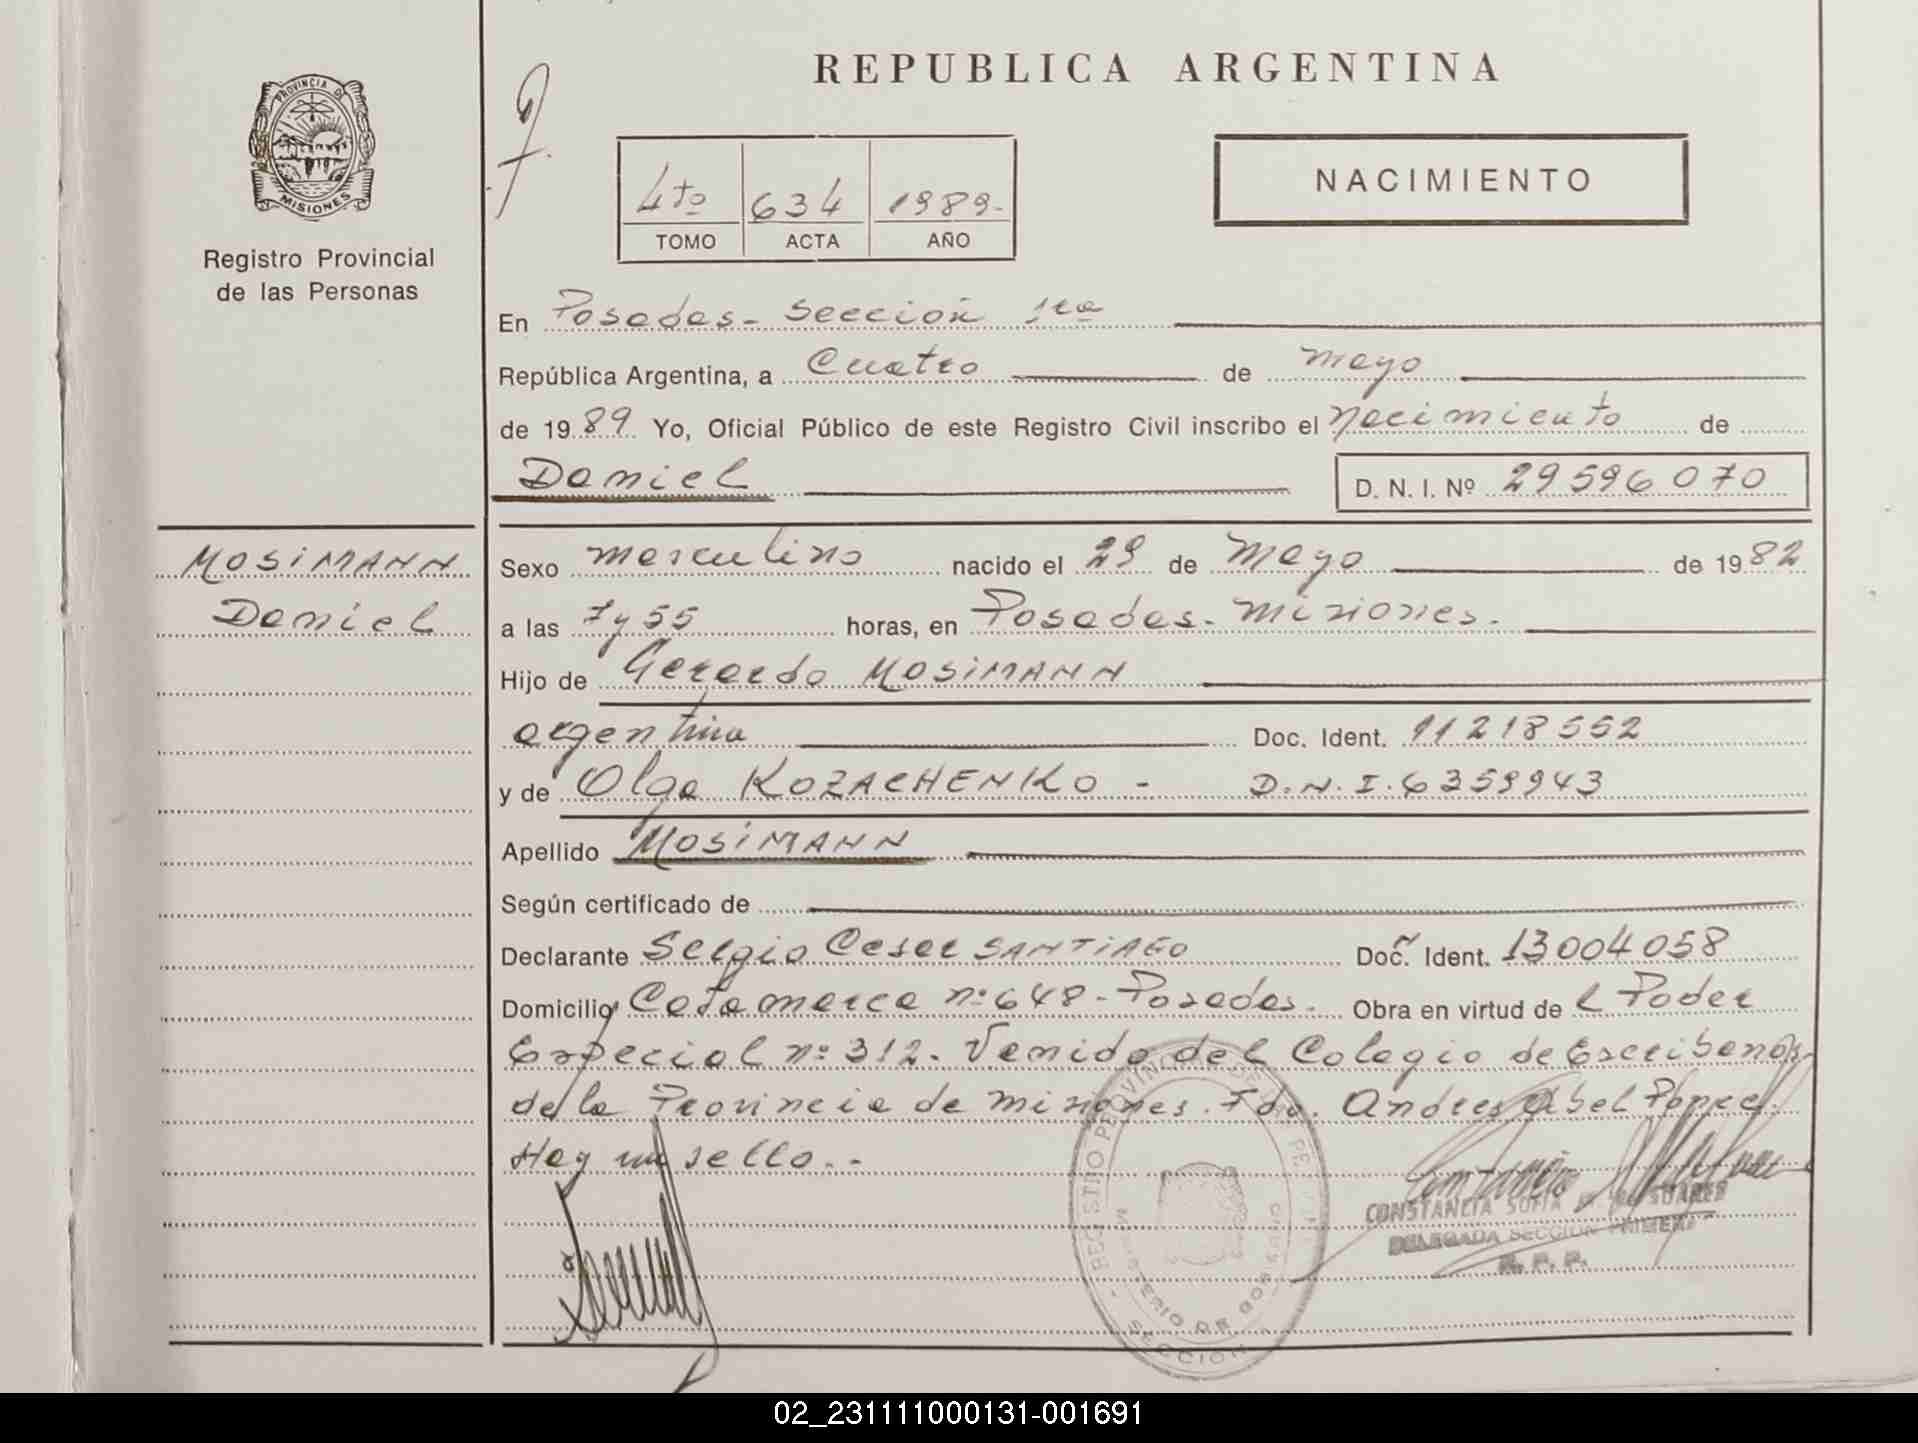 REPUBLICA ARGENTINA
PROVINCIA DE
MISIONES
Registro Provincial
de las Personas
4to 634 1989-
TOMO ACTA AÑO
NACIMIENTO
En Posadas - Sección 1ra
República Argentina, a Cuatro de Mayo
de 1989 Yo, Oficial Público de este Registro Civil inscribo el Nacimiento de
Daniel D. N. I. Nº 29596070
MOSIMANN
Daniel
Sexo masculino nacido el 29 de Mayo de 1982
a las 7 y 55 horas, en Posadas - Misiones.
Hijo de Gerardo MOSIMANN
argentina Doc. Ident. 11218552
y de Olga KOZACHENKO - D.N.I. 6359943
Apellido MOSIMANN
Según certificado de
Declarante Sergio Cesar SANTIAGO Doc. Ident. 13004058
Domicilio Catamarca nº 648 - Posadas. Obra en virtud de l Poder
Especial nº 312. Venido del Colegio de Escribanos
de la Provincia de Misiones. Fdo. Andres Abel
Hay un sello. -
CONSTANCIA SOFIA SUAREZ
DELEGADA SECCION PRIMERA
R. P. P.
02_231111000131-001691